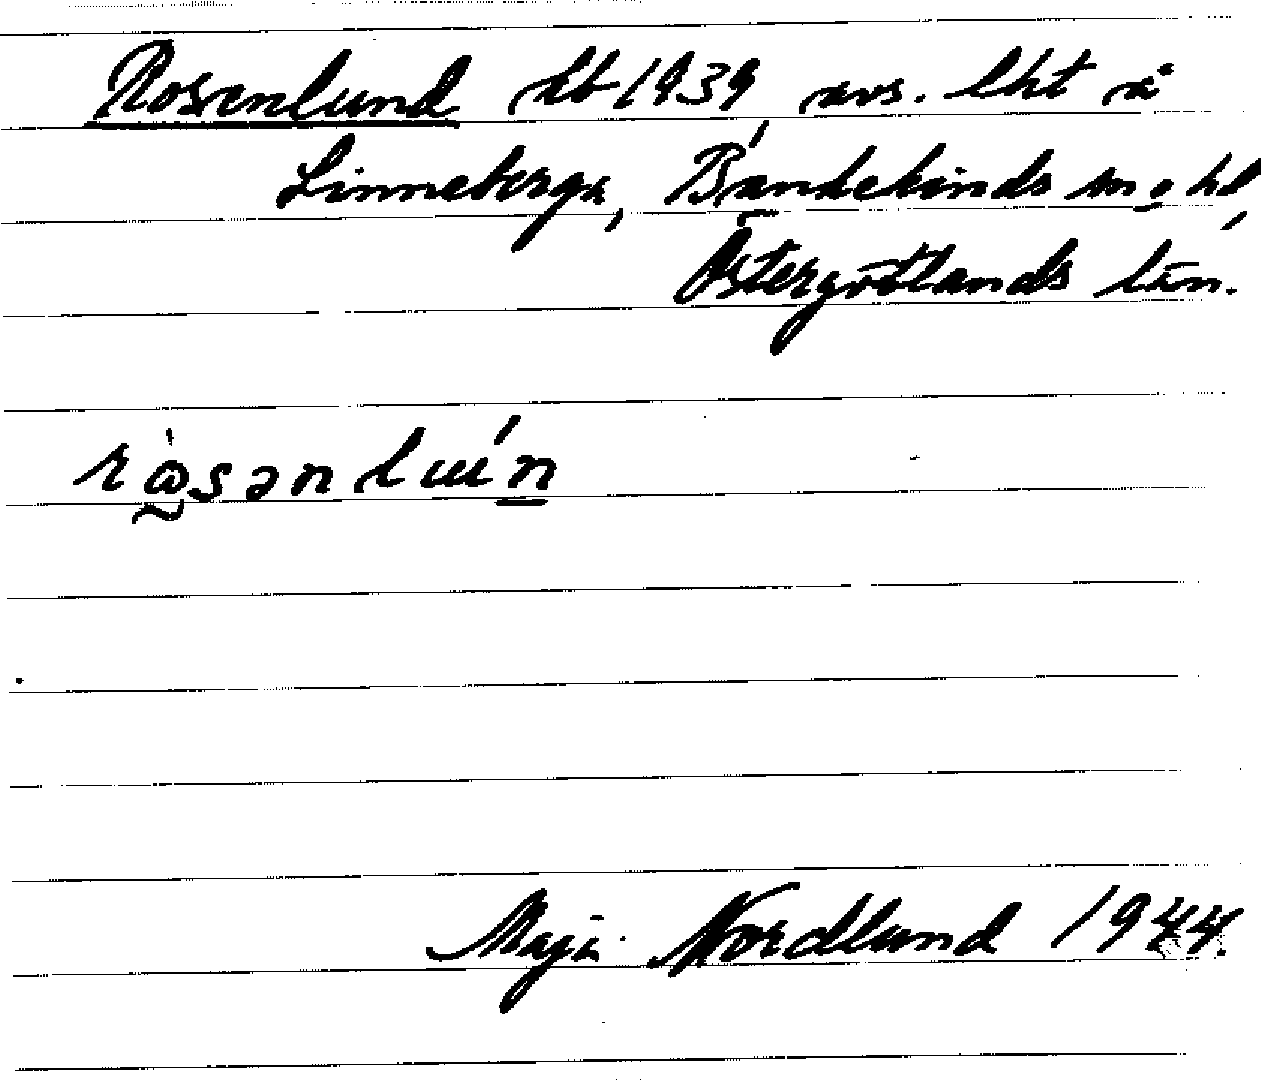 Rosenlund Ab 1939 avs. lht å
Linneberga, Bankekinds sn o hd
Östergötlands län.
Maja Nordlund 1944.